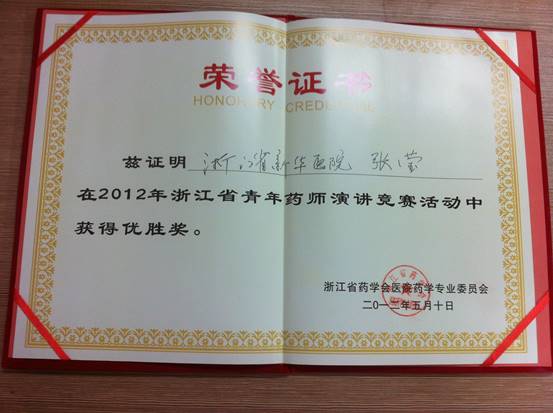 荣誉证书
HONORARY CREDENTIAL
兹证明 浙江省新华医院 张莹
在2012年浙江省青年药师演讲竞赛活动中
获得优胜奖。
浙江省药学会医院药学专业委员会
二〇一二年五月十日